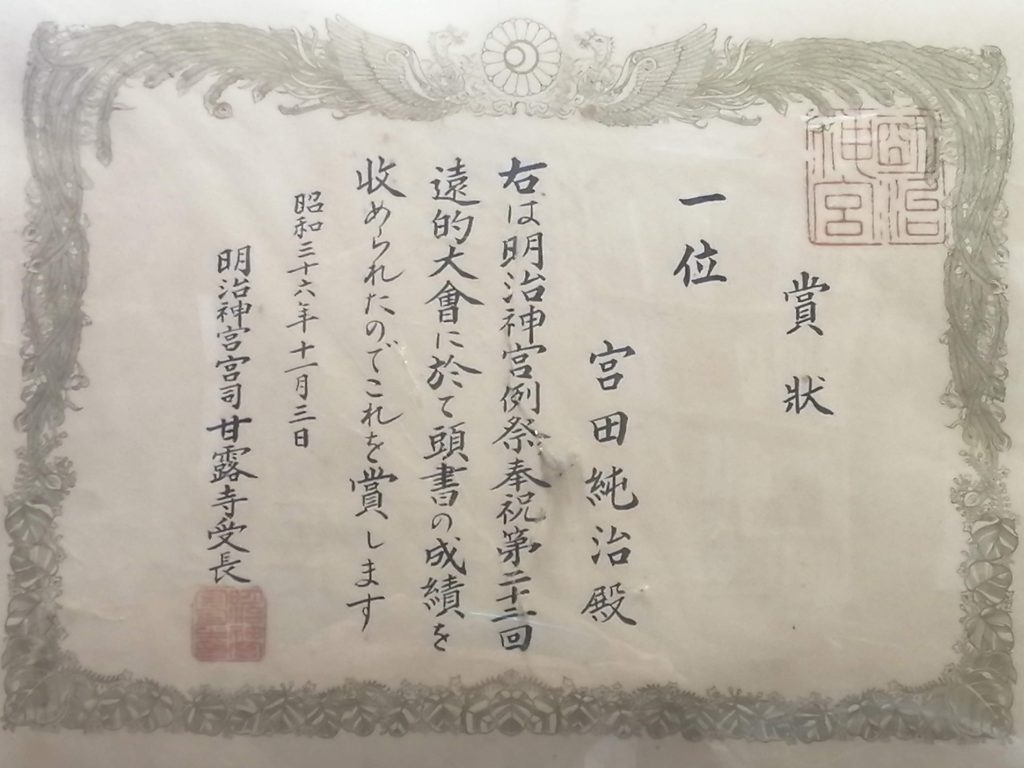 明治神宮
賞状
一位
宮田純治殿
右は明治神宮例祭奉祝第二十二回
遠的大會に於て頭書の成績を
收められたのでこれを賞します
昭和三十六年十一月三日
明治神宮宮司甘露寺受長